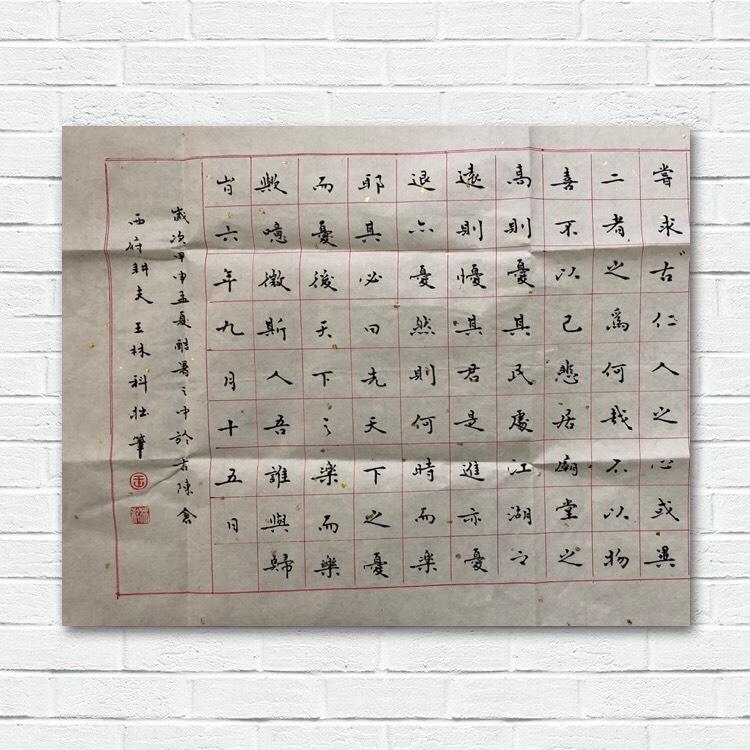 嘗求古仁人之心或異
二者之爲何哉不以物
喜不以己悲居廟堂之
高則憂其民處江湖之
遠則懮其君是進亦憂
退亦憂然則何時而樂
耶其必曰先天下之憂
而憂後天下之樂而樂
歟噫微斯人吾誰與歸
旹六年九月十五日
歲次甲申孟夏酷暑之中於古陳倉
西府耕夫王林科拙筆
王